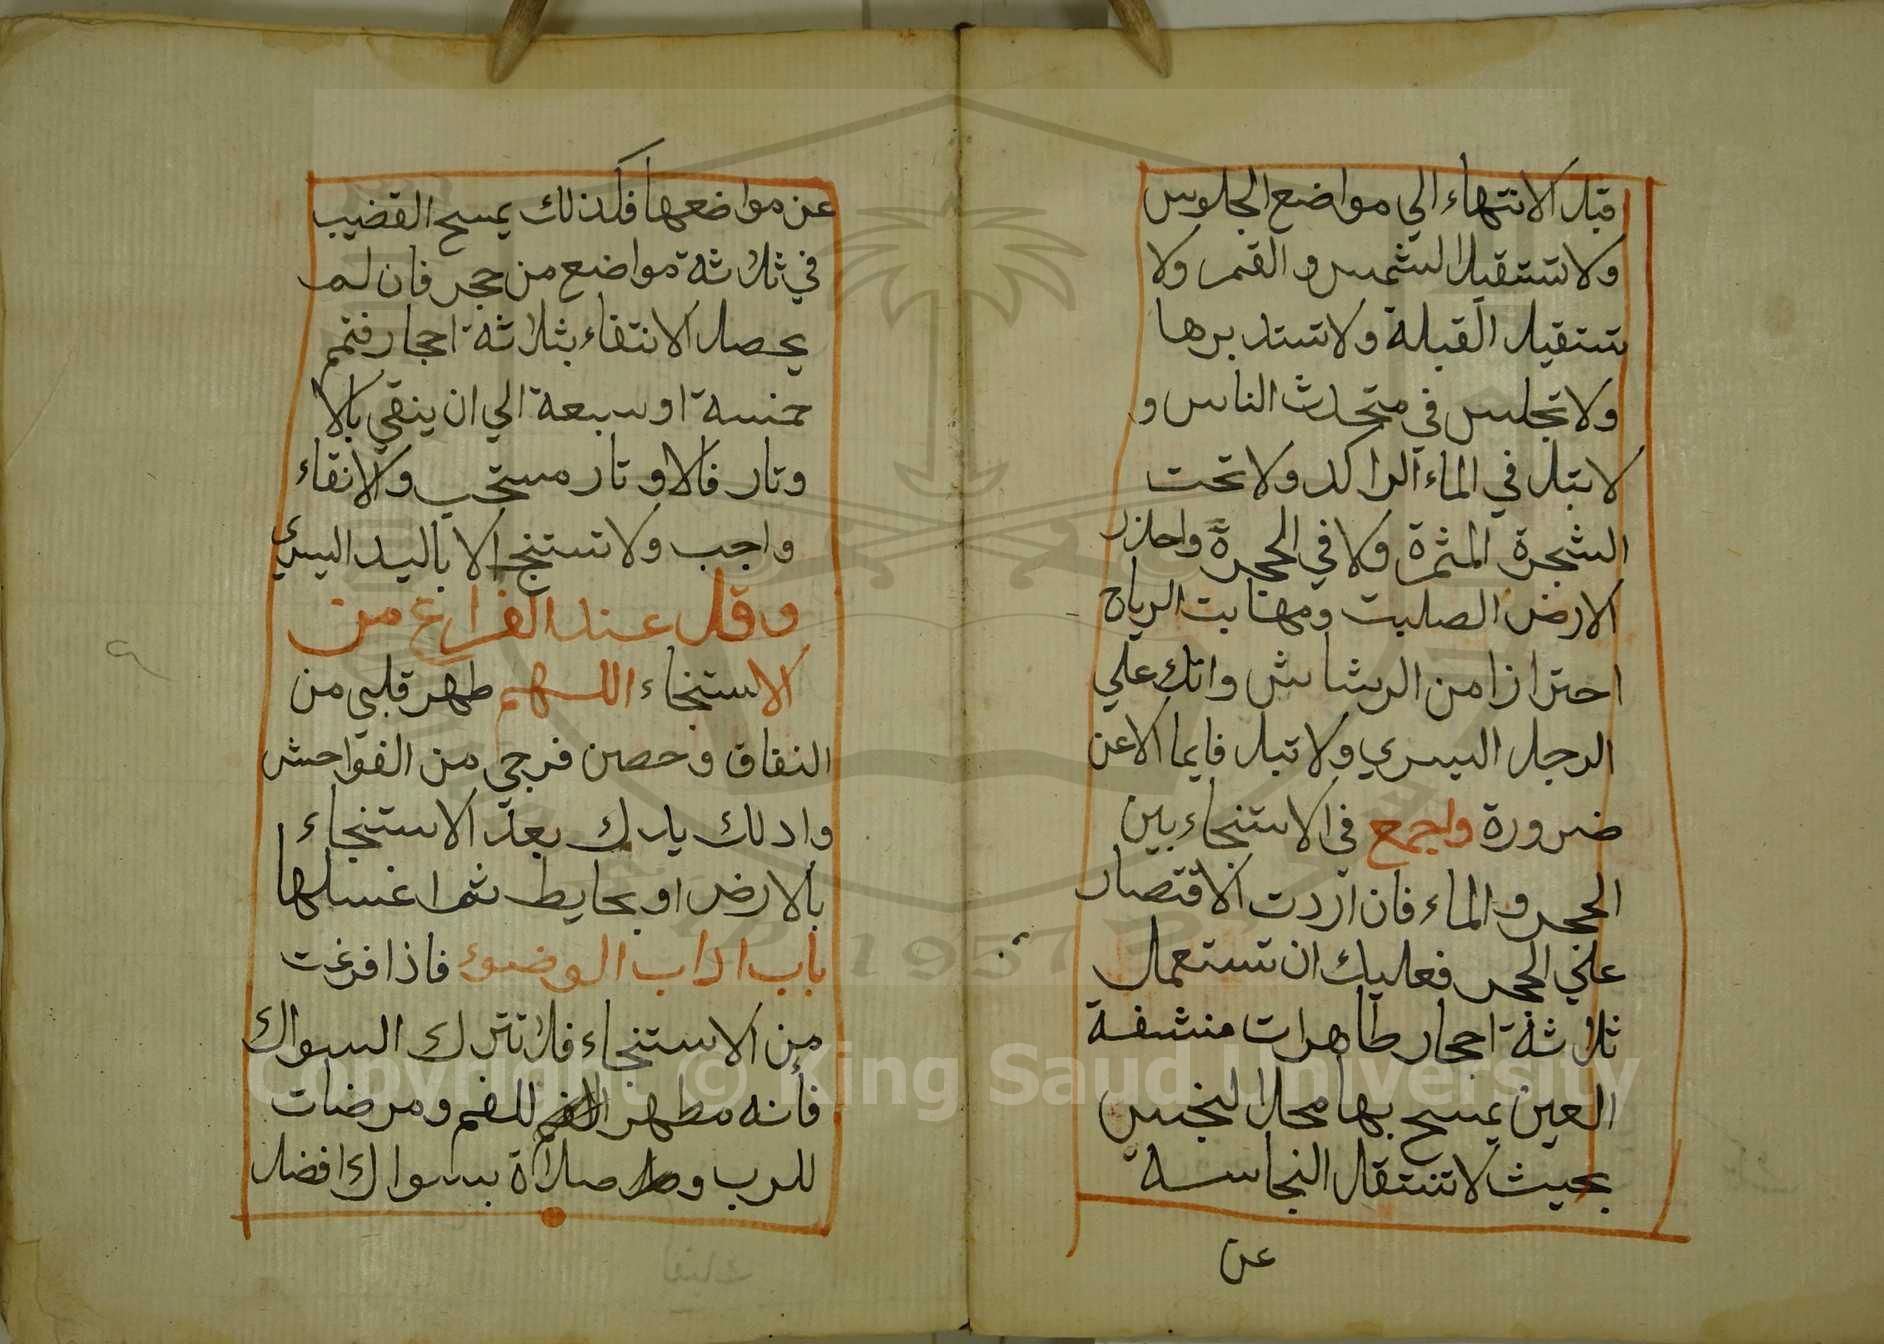 قبل الانتهاء الي مواضع الجلوس
ولا تستقبل الشمس والقمر ولا
تستقبل القبلة ولا تستدبرها
ولا تجلس في متحدث الناس و
لا تبل في الماء الراكد ولا تحت
الشجرة المثمرة ولا في الحجرة واحذر
الارض الصلبت ومهابت الرياح
احترازا من الرشاش واتك علي
الرجل اليسري ولا تبل قايما الا عن
ضرورة واجمع في الاستنجاء بين
الحجر والماء فان اردت الاقتصار
علي الحجر فعليك ان تستعمل
ثلاثة احجار طاهرات منشفة
العين يمسح بها محل النجس
بحيث لا تنتقل النجاسة
عن
عن مواضعها فكذلك يمسح القضيب
في ثلاثة مواضع من حجر فان لم
يحصل الانتقاء بثلاثة احجار فتمم
خمسة او سبعة الي ان ينقي بالا
وتار فالاوتار مستحب والانقاء
واجب ولا تستنج الا باليد اليسري
وقل عند الفراغ من
الاستنجاء اللهم طهر قلبي من
النفاق وحصن فرجي من الفواحش
وادلك يدك بعد الاستنجاء
بالارض او بحايط ثم اغسلها
باب اداب الوضوء فاذا فرغت
من الاستنجاء فلا تترك السواك
فانه مطهر للفم ومرضات
للرب و صلاة بسواك افضل
Copyright © King Saud University
1957